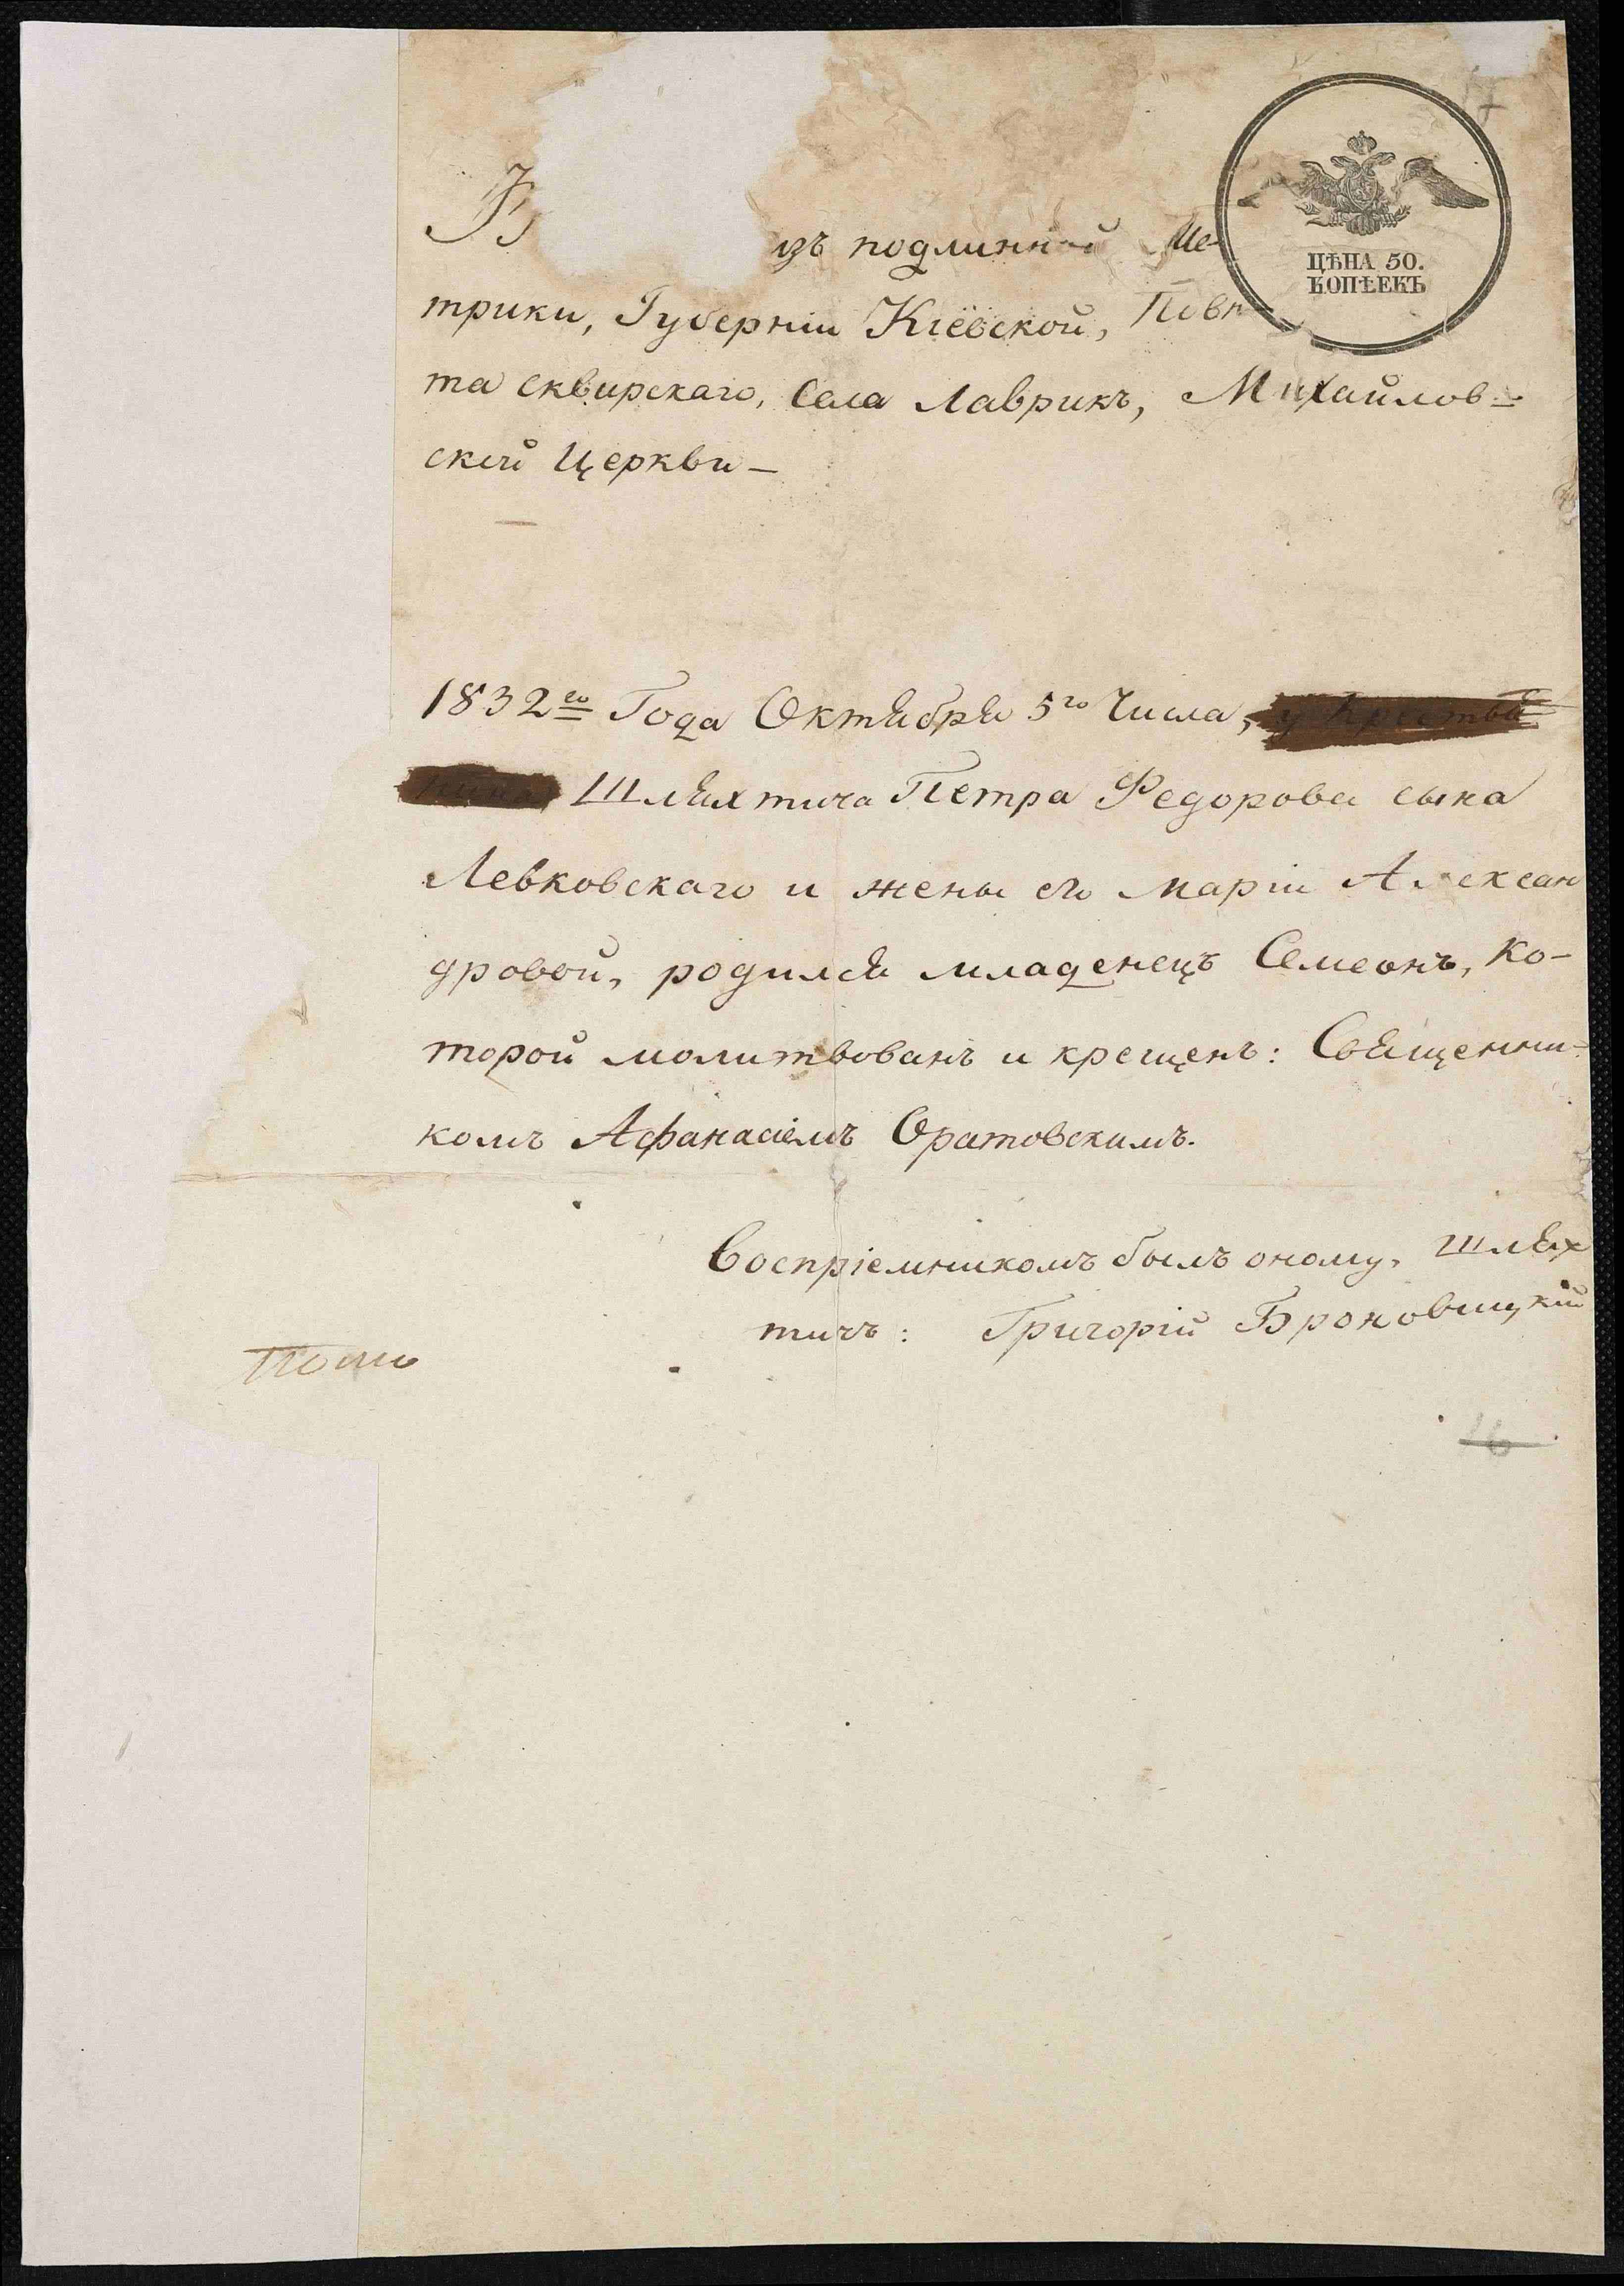 изъ подлинной Ме-
ЦѢНА 50.
КОПѢЕКЪ
трики, Губерніи Кіевской, Повѣ
та сквирскаго, Села Лаврикъ, Михайлов=
ской Церкви –
1832го Года Октября 5го Числа, у Крестья
нина Шляхтича Петра Федорова сына
Левковскаго и жены его Маріи Алексан
дровой, родился младенецъ Семеонъ, Ко-
торой молитвованъ и крещенъ: Священни=
комъ Афанасіемъ Оратовскимъ.
Воспріемникомъ былъ оному, Шлях
тичъ: Григорій Броновицкій
16